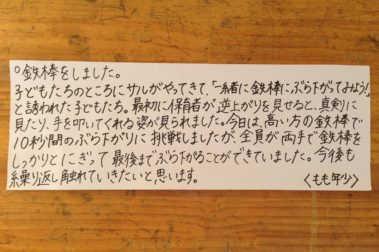 ○鉄棒をしました。
子どもたちのところにサルがやってきて、「一緒に鉄棒にぶら下がってみよう!」
と誘われた子どもたち。最初に保育者が逆上がりを見せると、真剣に
見たり、手を叩いてくれる姿が見られました。今日は、高い方の鉄棒で
10秒間のぶら下がりに挑戦しましたが、全員が両手で鉄棒を
しっかりとにぎって最後までぶら下がることができていました。今後も
繰り返し触れていきたいと思います。
〈もも年少〉